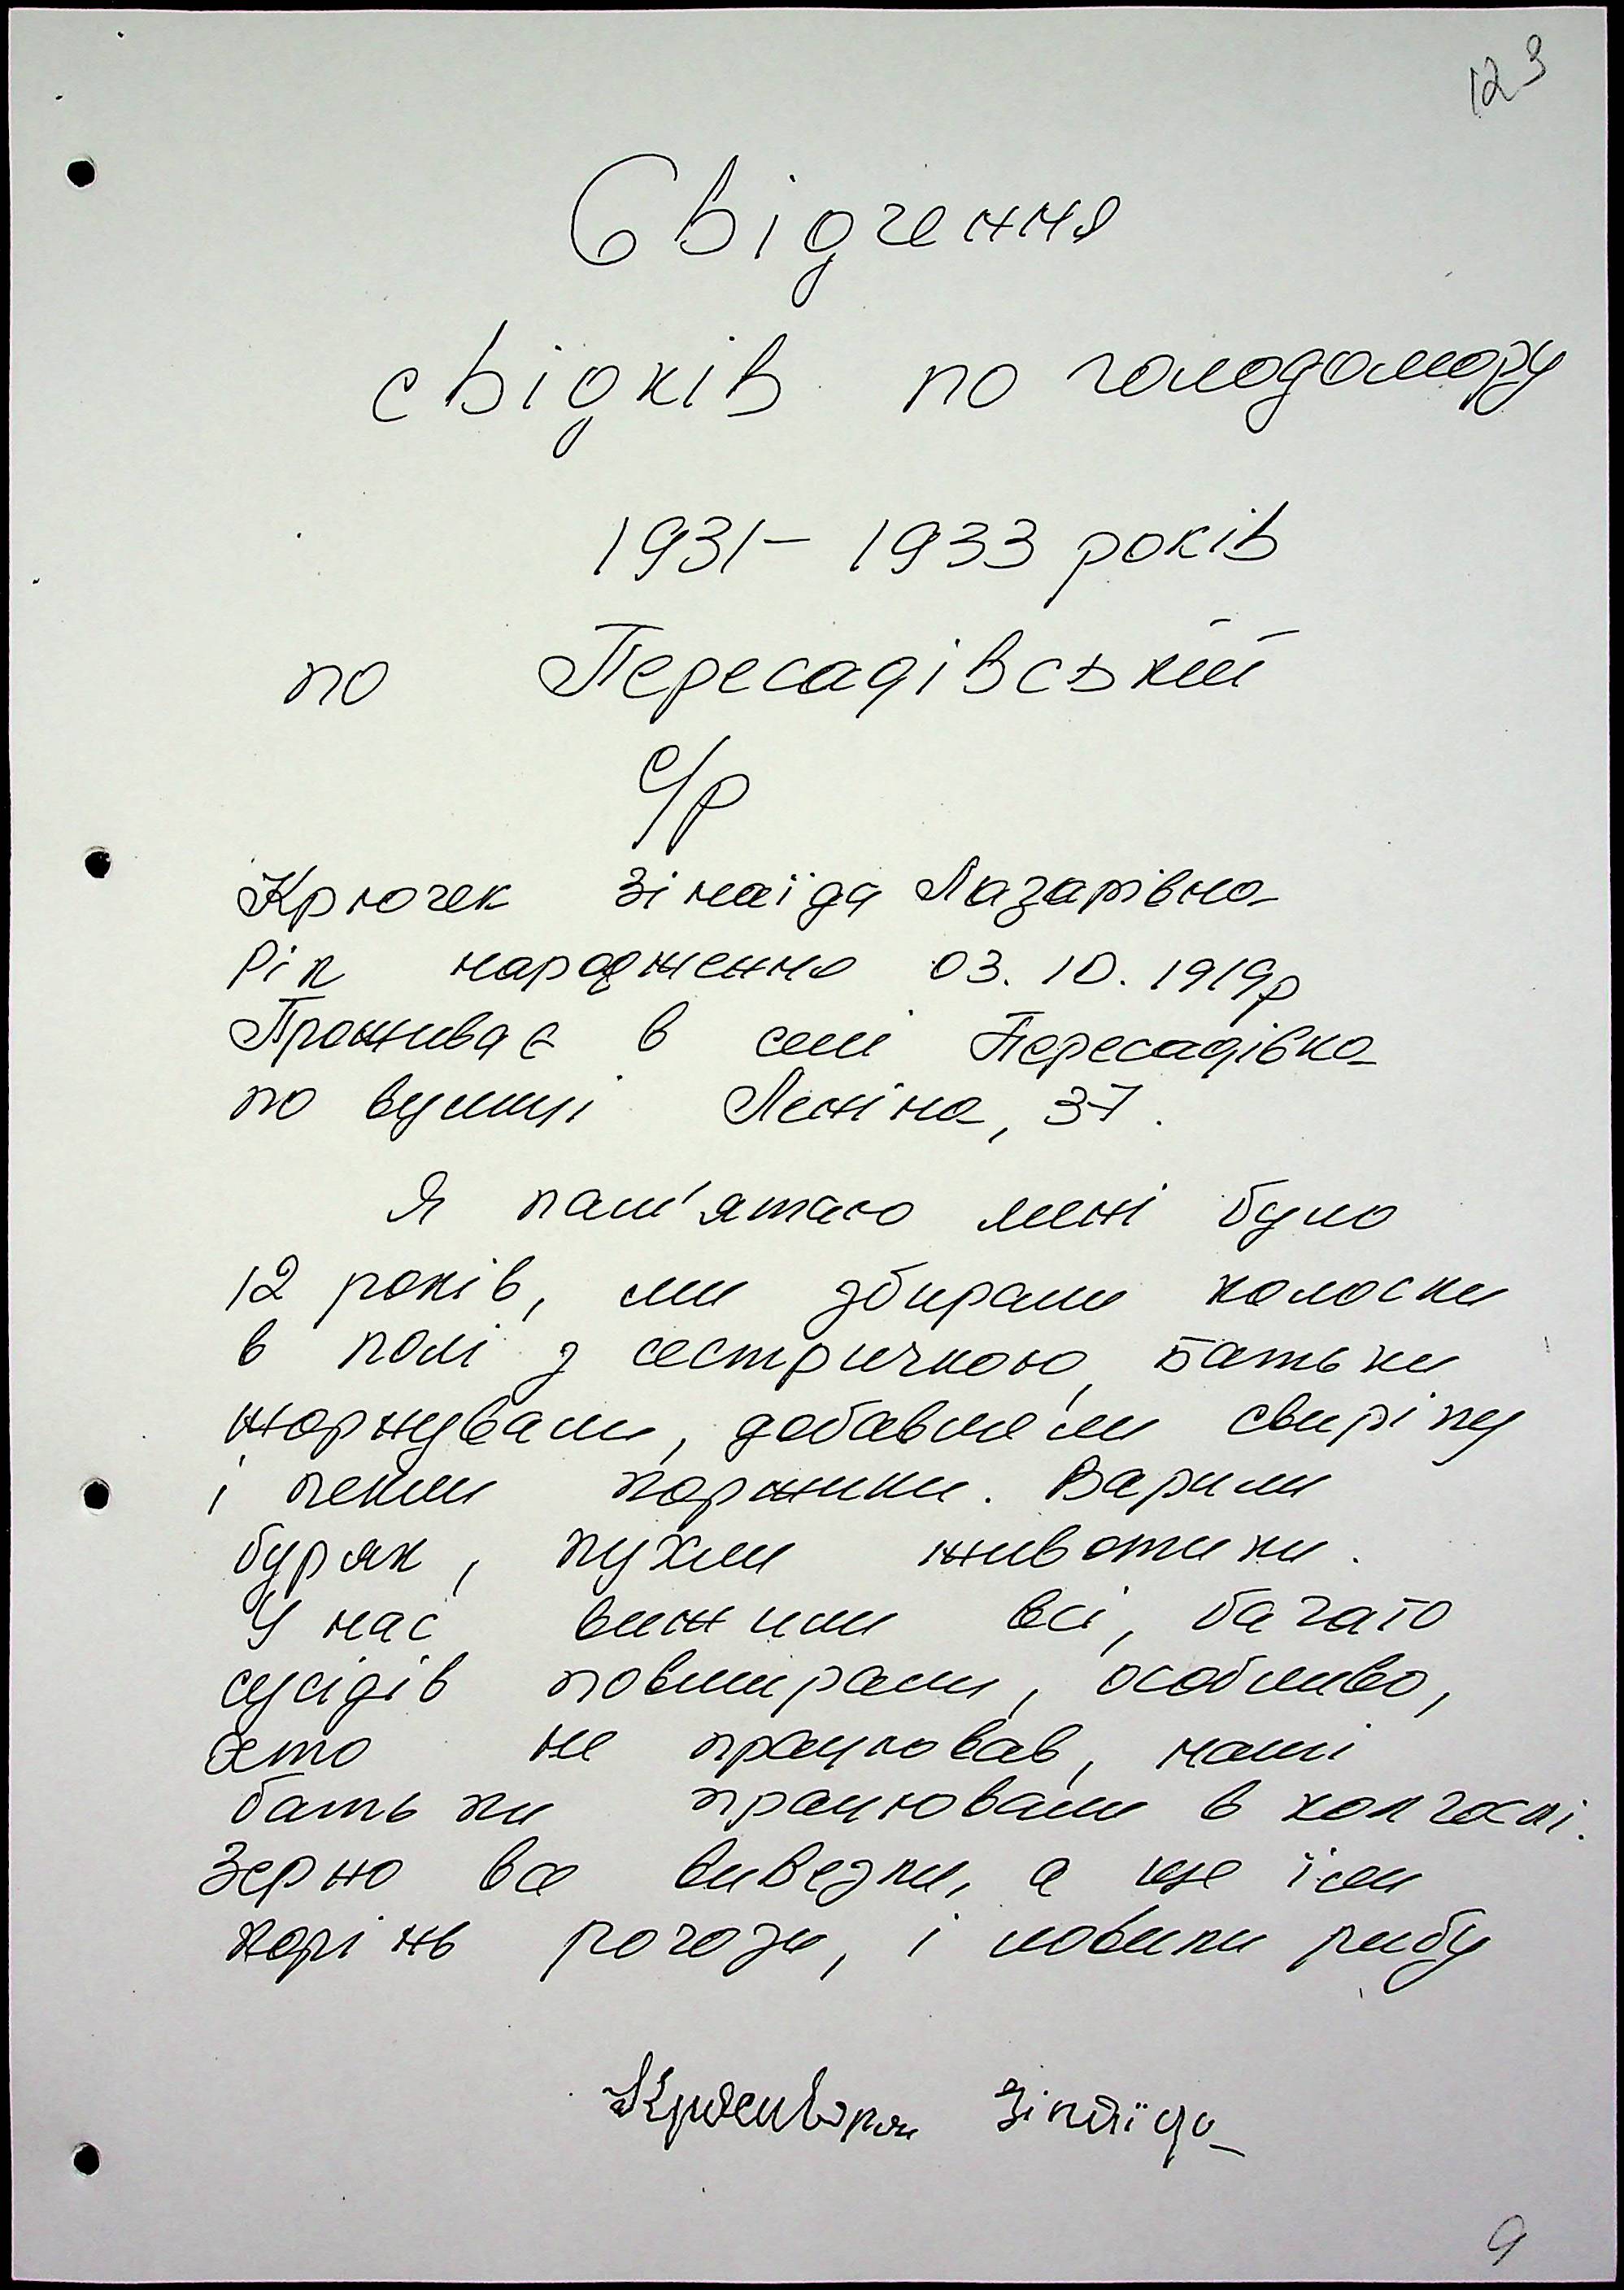 123
Свідчення
свідків по голодомору
1931 – 1933 років
по Пересадівській
с/р
Крючек Зінаїда Лазарівна
Рік народження 03.10.1919р
Проживає в селі Пересадівка
по вулиці Леніна, 37.
Я пам'ятаю мені було
12 років, ми збирали колоски
в полі з сестричкою, батьки
жорнували, добавляли свиріпу
і пекли коржики. Варили
буряк, пухли животики.
У нас вижили всі, багато
сусідів повмирали, особливо,
хто не працював, наші
батьки працювали в колгоспі.
Зерно все вивезли, а ще їли
корінь рогози, і ловили рибу
Зінаїда
9